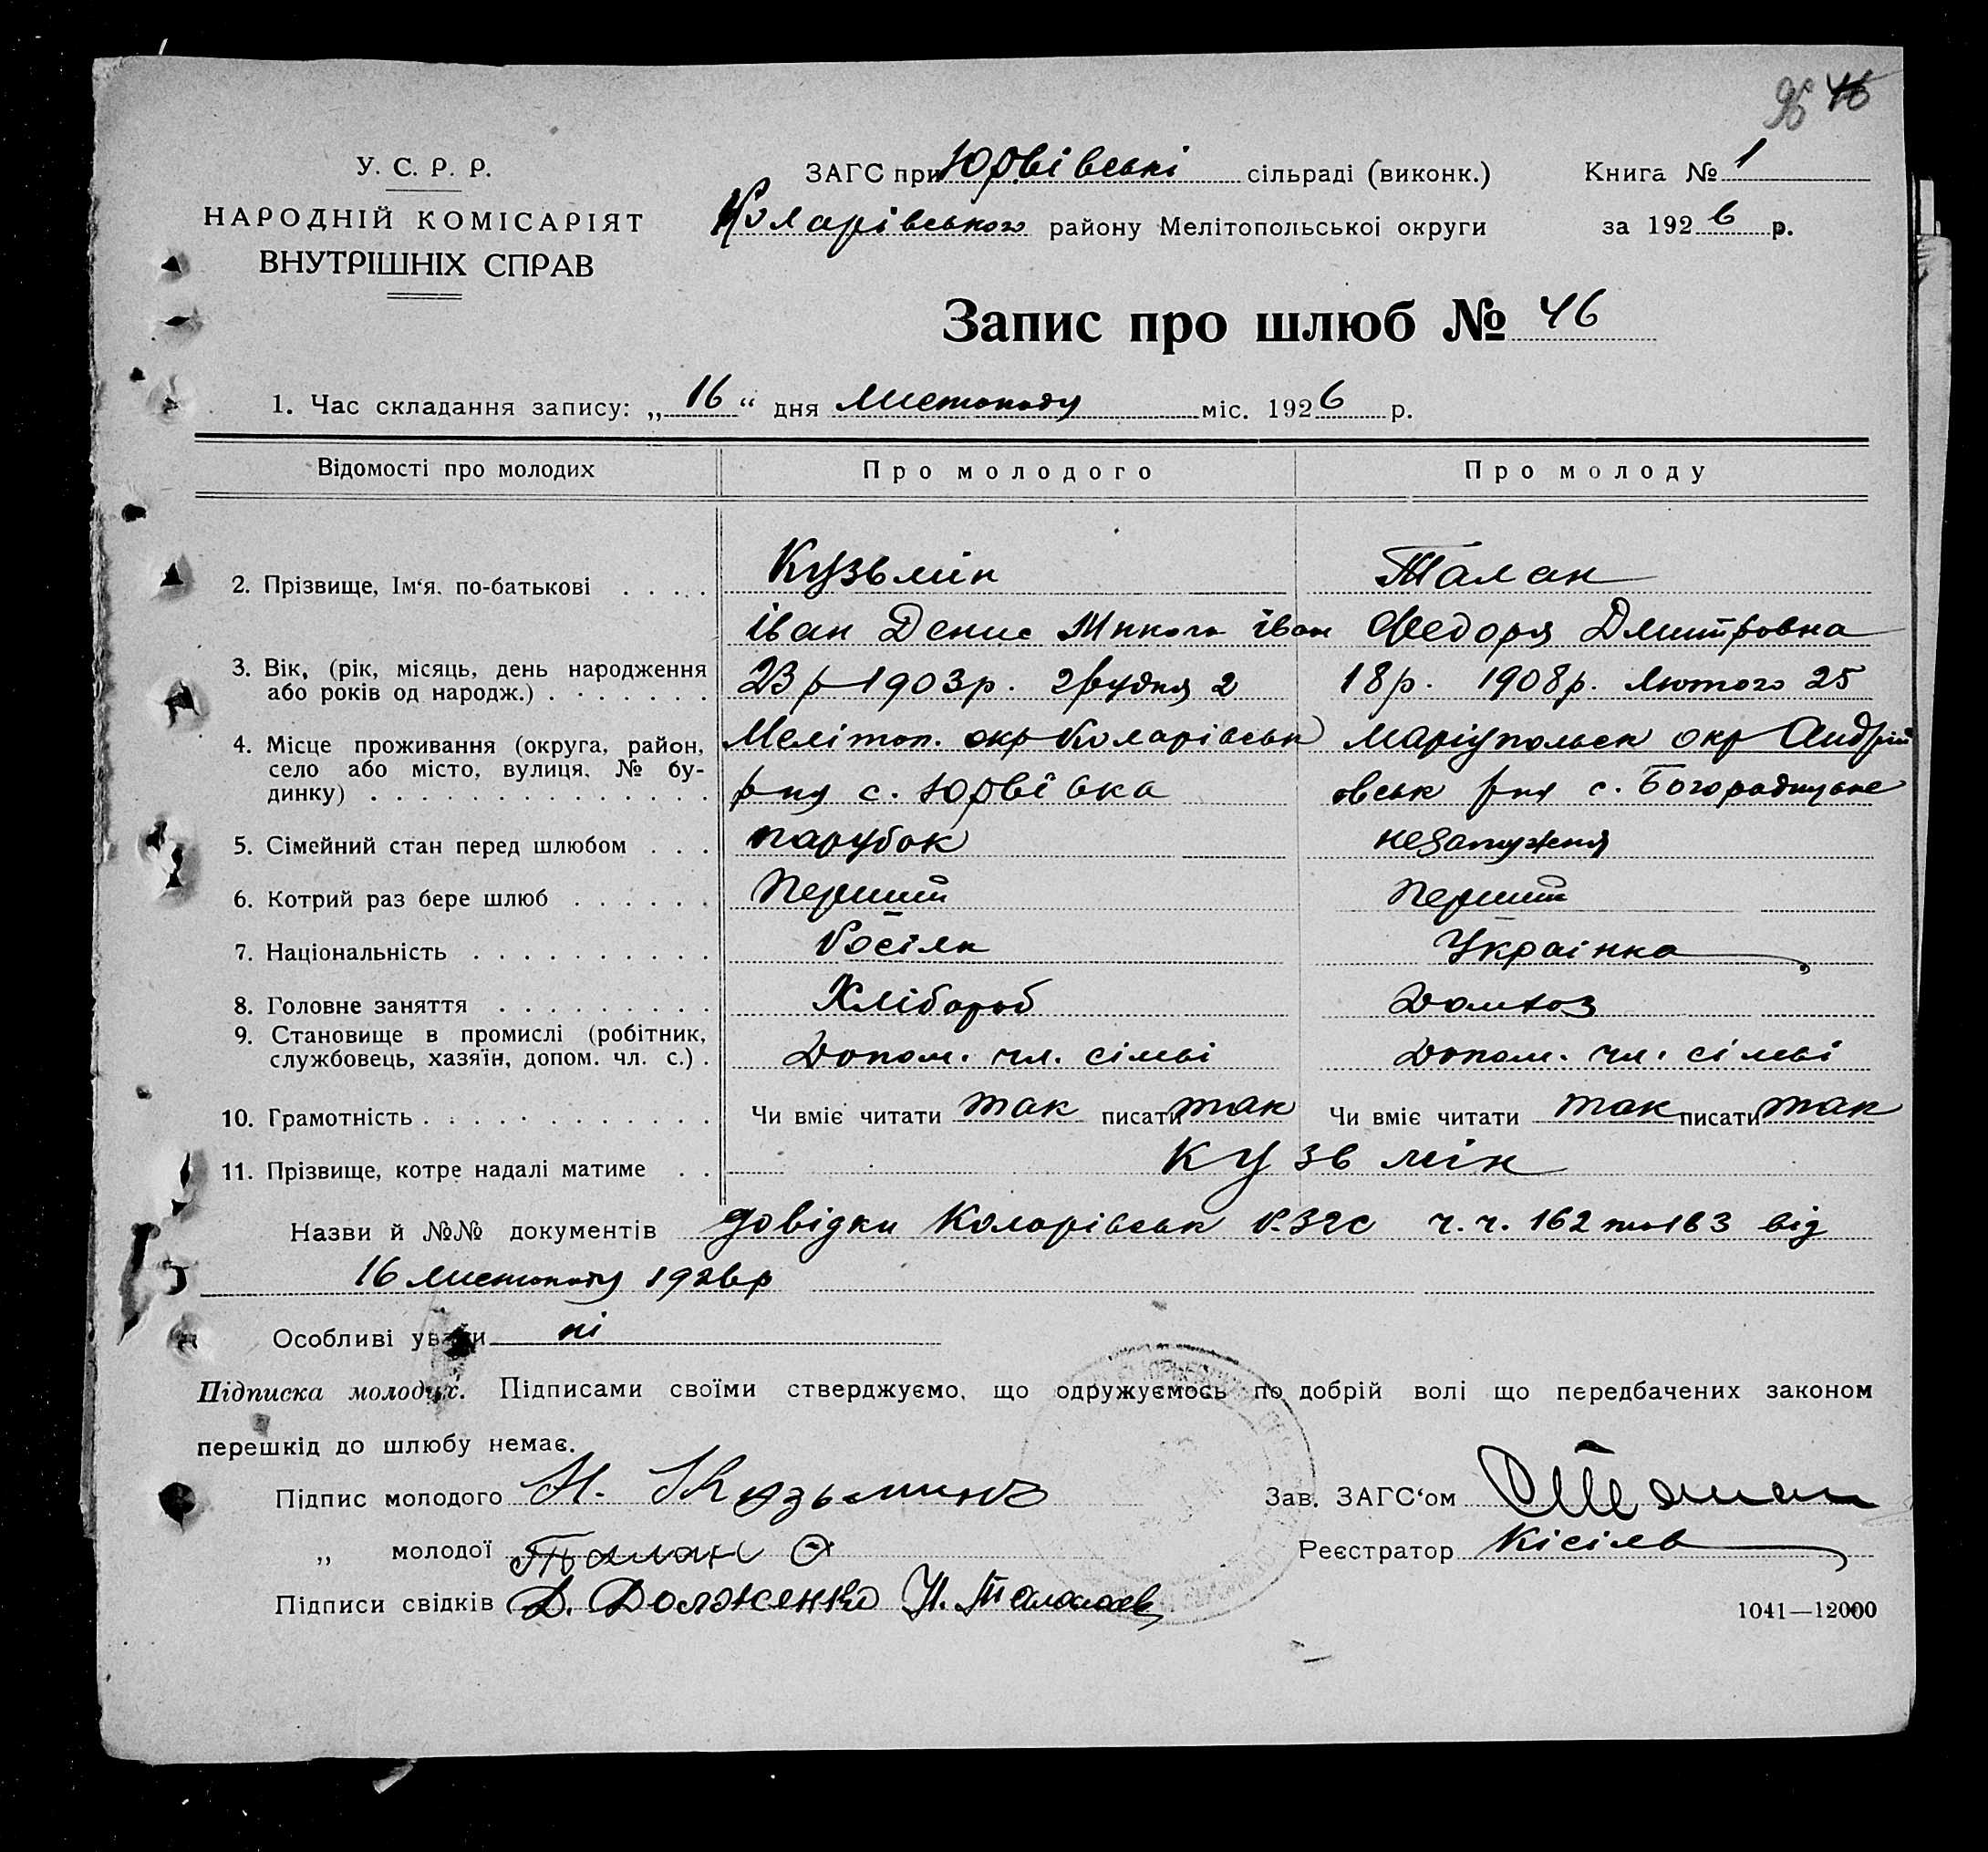 46
У. С. Р. Р.
НАРОДНІЙ КОМІСАРІЯТ
ВНУТРІШНІХ СПРАВ
ЗАГС при Юрвівські сільраді (виконк.)
Коларівського району Мелітопольськоі округи
Книга № 1
за 1926 р.
Запис про шлюб № 46
1. Час складання запису: „16“ дня листопаду міс. 1926 р.
Відомості про молодих
Про молодого
Про молоду
2. Прізвище, Ім‘я. по-батькові
Кузьмін
Талан
Іван Денис Іван
Федоря Дмитровна
3. Вік, (рік, місяць, день народження
або років од народж.)
23 р 1903р. грудня 2
18р. 1908р. Лютого 25
4. Місце проживання (округа, район,
село або місто, вулиця, № бу-
динку)
Мелітоп. окр Коларівськ
рну с. Юрвівка
Маріупольск окр Андрій
овськ рну с. Богородицьке
5. Сімейний стан перед шлюбом
парубок
незамужня
6. Котрий раз бере шлюб
Перший
Перший
7. Національність
Росіян
Украінка
8. Головне заняття
Хлібороб
Домхоз
9. Становище в промислі (робітник,
службовець, хазяїн, допом. чл. с.)
Допом. чл. сімьі
Допом. чл. сімьі
10. Грамотність
Чи вміє читати так писати так
Чи вміє читати так писати так
11. Прізвище, котре надалі матиме
Кузьмін
Назви й №№ документів довідки Коларівськ ч.ч. 162 та 163 від
16 листопаду 1926р
Особливі уваги ні
Підписка молодих. Підписами своїми стверджуємо, що одружуємось по добрій волі що передбачених законом
перешкід до шлюбу немає.
Підпис молодого И. Кузьминъ
Зав. ЗАГС‘ом
„ молодої Талан
Реєстратор Кісіль
Підписи свідків Д. Долженко
1041—12000